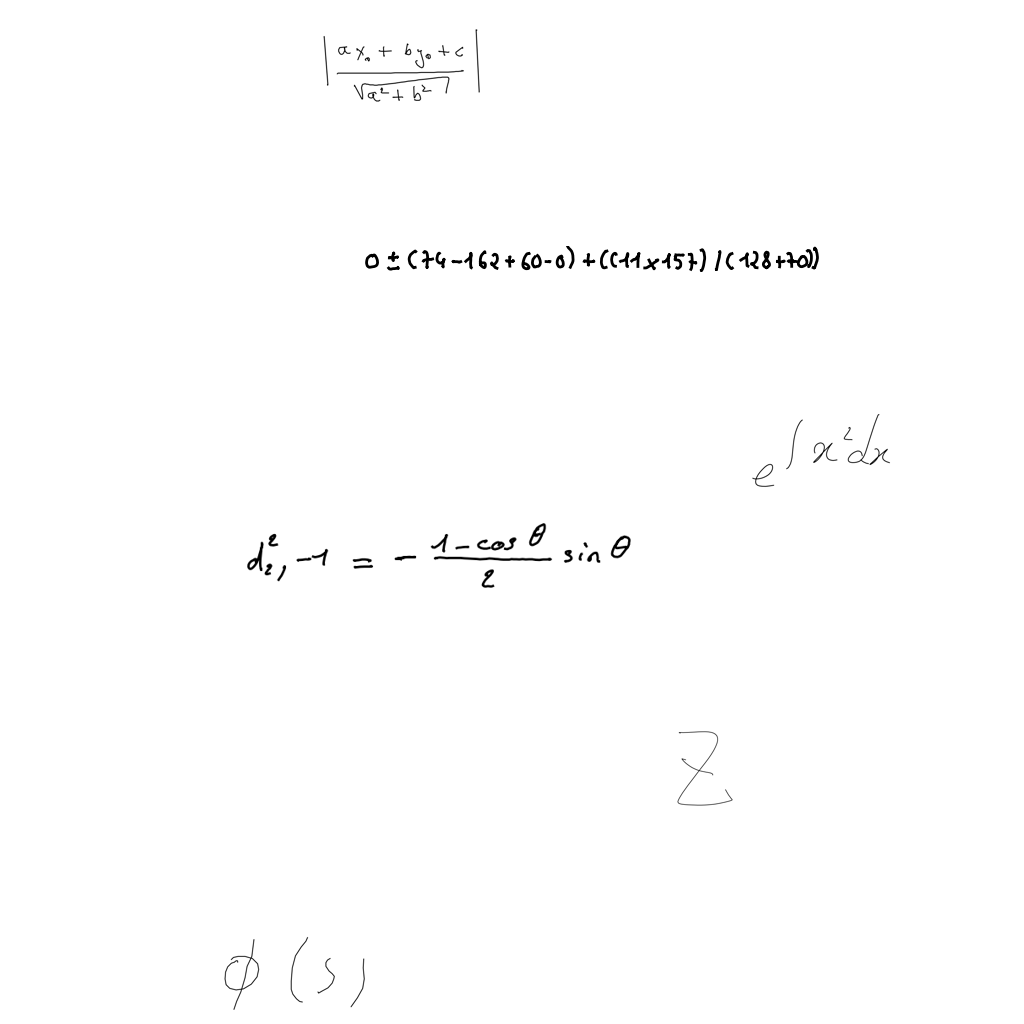 \left| \frac{ax_0 + by_0 + c}{\sqrt{a^2 + b^2}} \right|
0 ± (74-162+60-0) + ((11×157) / (128+70))
e^{\int x^2 dx}
d^2_{2}, -1 = - \frac{1 - \cos θ}{2} \sin θ
Z
ϕ(s)